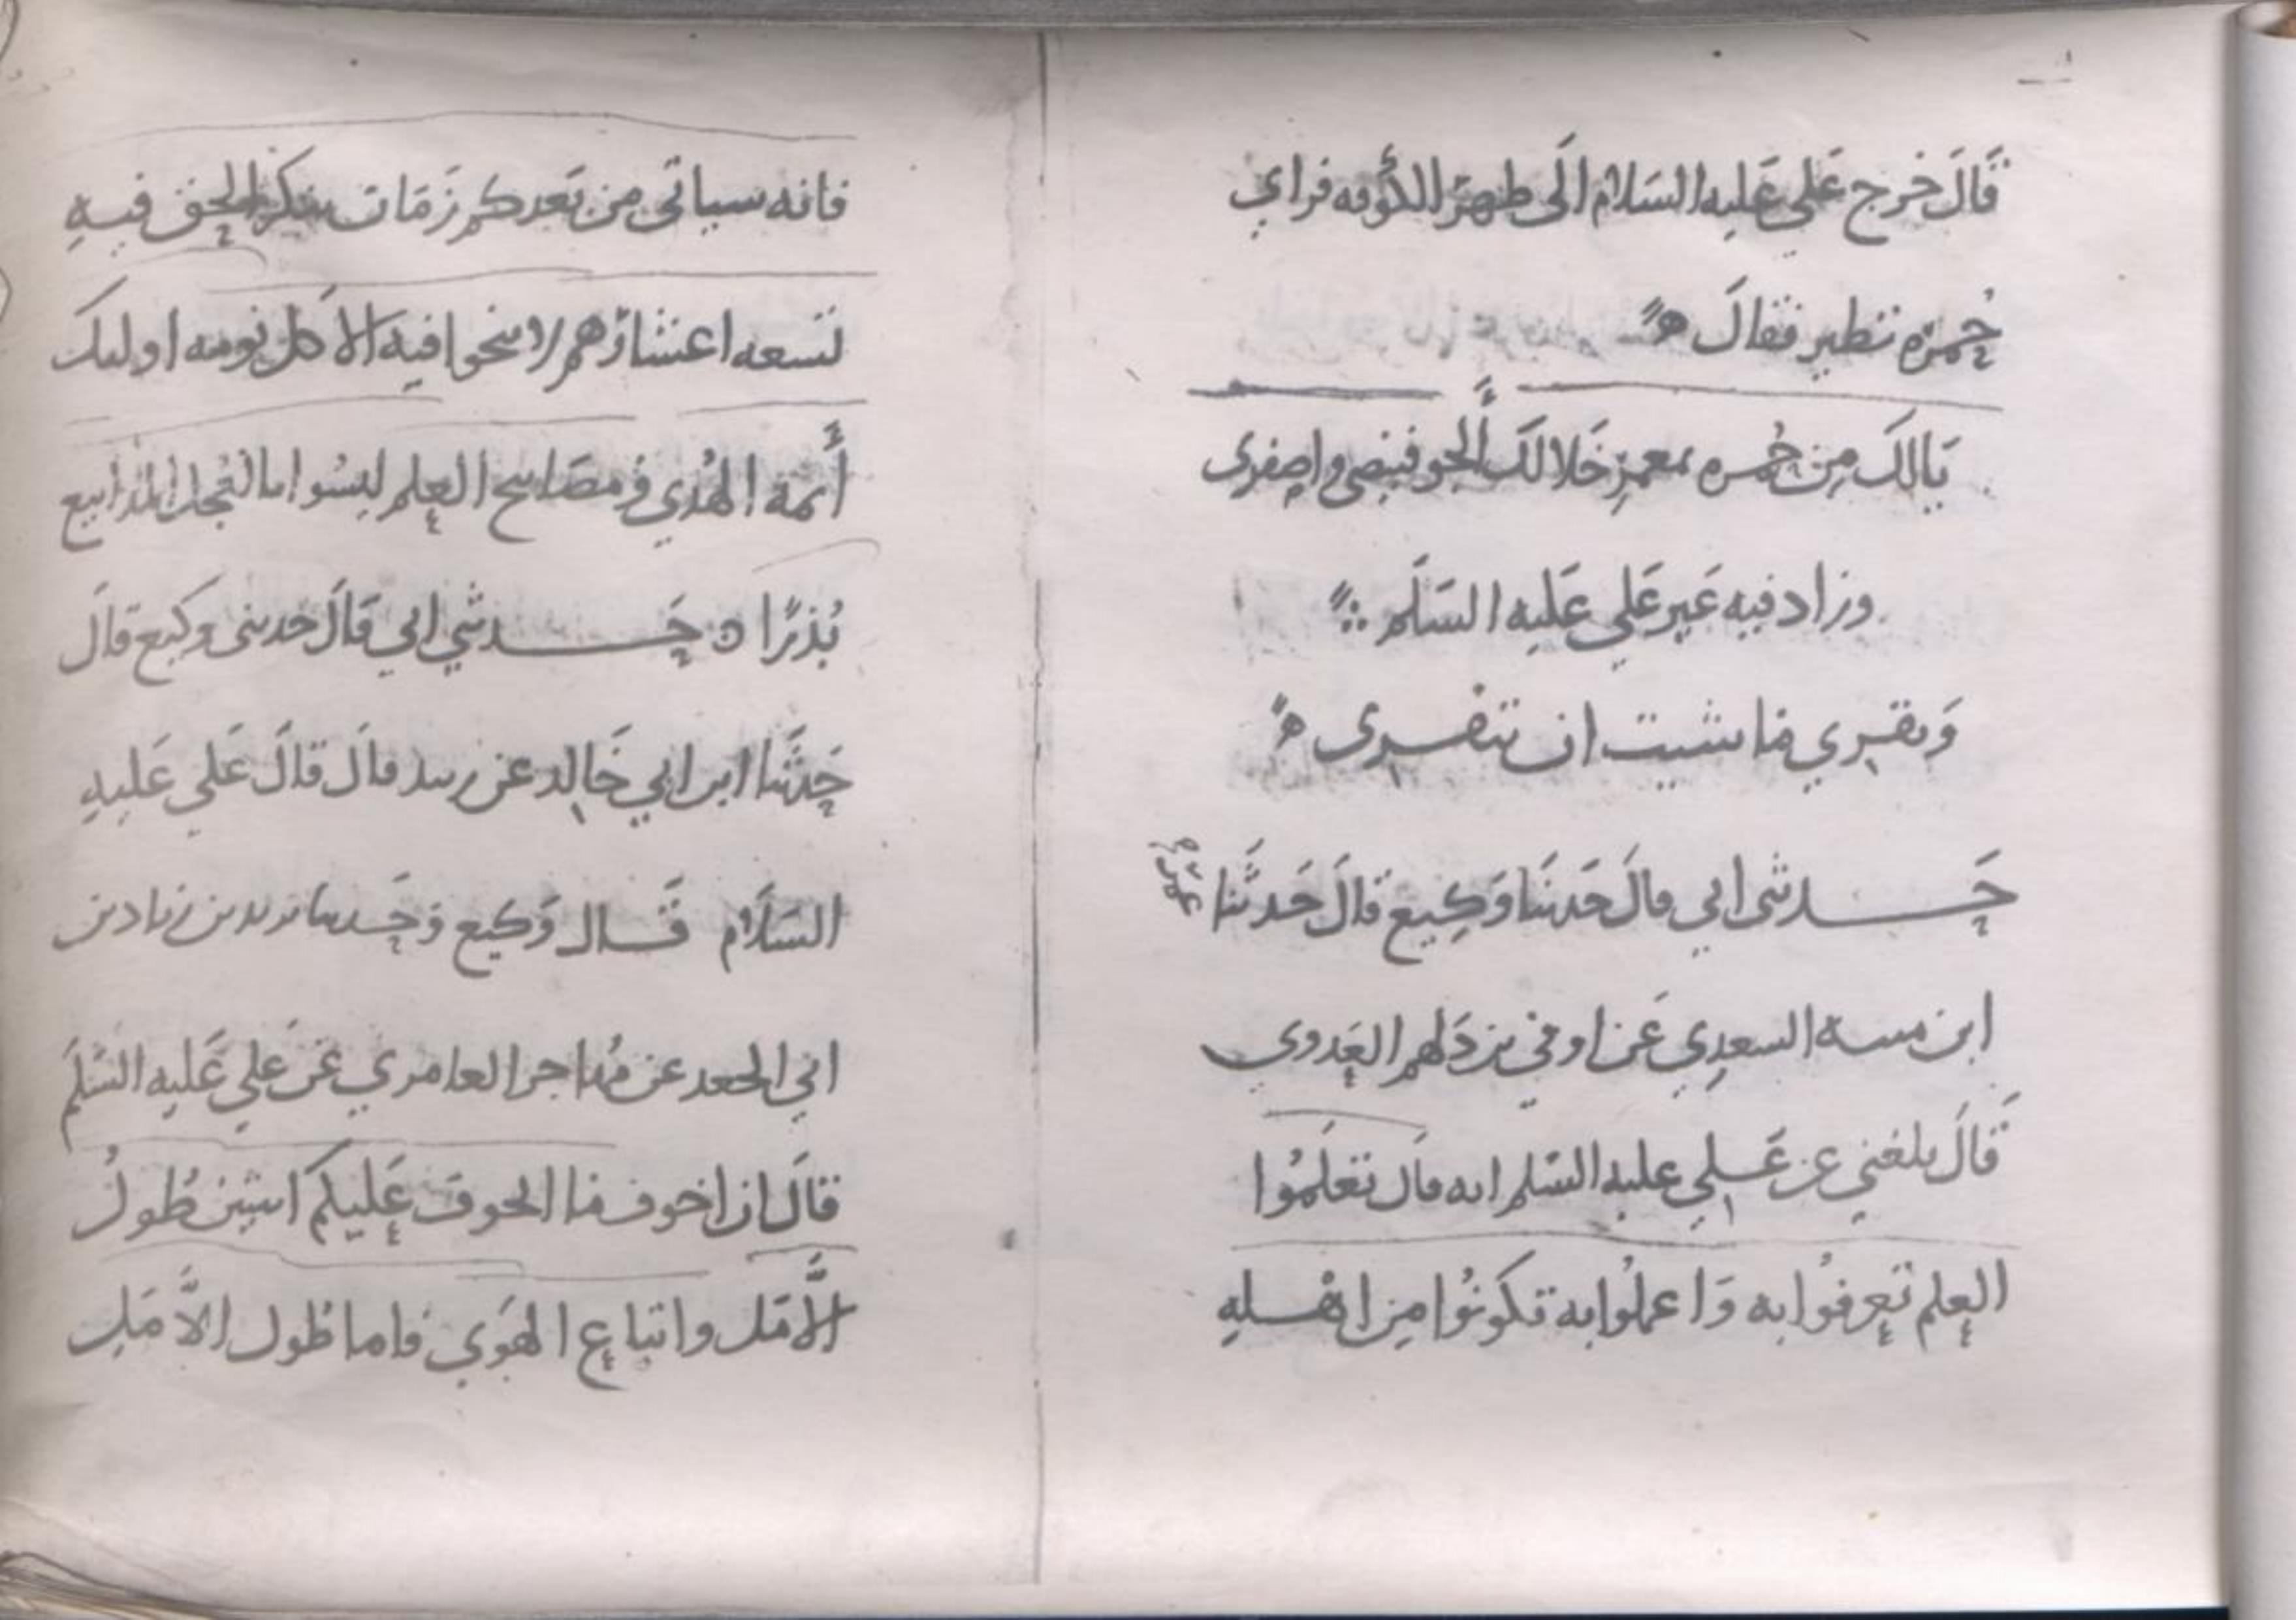 قَالَ خرج عَلي عَليه السَلام الَى ظهر الكوفه فراي
حُمرَه تطير فقالَ
يَالكَ مِن حُمره بمعمرِ خَلا لكَ الجو فبيضي واصفري
وزاد فيه غَير عَلي عَليه السَلَم
وَنقري ما شيت ان تنقري
حَدثني ابي قالَ حَدثنَا وَكِيع قالَ حَدثَنا
ابن منبه السعدِي عَن اوفي بن دَلهم العَدوي
قَالَ بلغني عن عَلي عليه السَلم انه قال تعَلمُوا
العِلم تعرفُوا به وَاعملُوا به تكونُوا مِن اهله
فانه سياتي من بَعدكم زَمَان ينكر الحق فيهِ
تسعه اعشارهم لا ينجوا فيه الا كل نومه اوليك
أَئمة الهُدي ومصَابيح العِلم ليسُوا بالعُجل المذاييع
بُذرًا حَدثني ابي قَالَ حدثنى وكيع قالَ
حَدثَنا ابن ابي خَالِد عن زبيد قالَ قالَ عَلي عَليهِ
السَلَام قَال وَكيع وَحَدثنا يزيد بن زياد بن
ابي الجعد عن مُهاجر العامري عَن علي عَليه السَلَم
قالَ ان اخوف ما اتخوف عَليكم اثنين طُولُ
الأَمَل واتباع الهَوي فاما طول الأَمَل